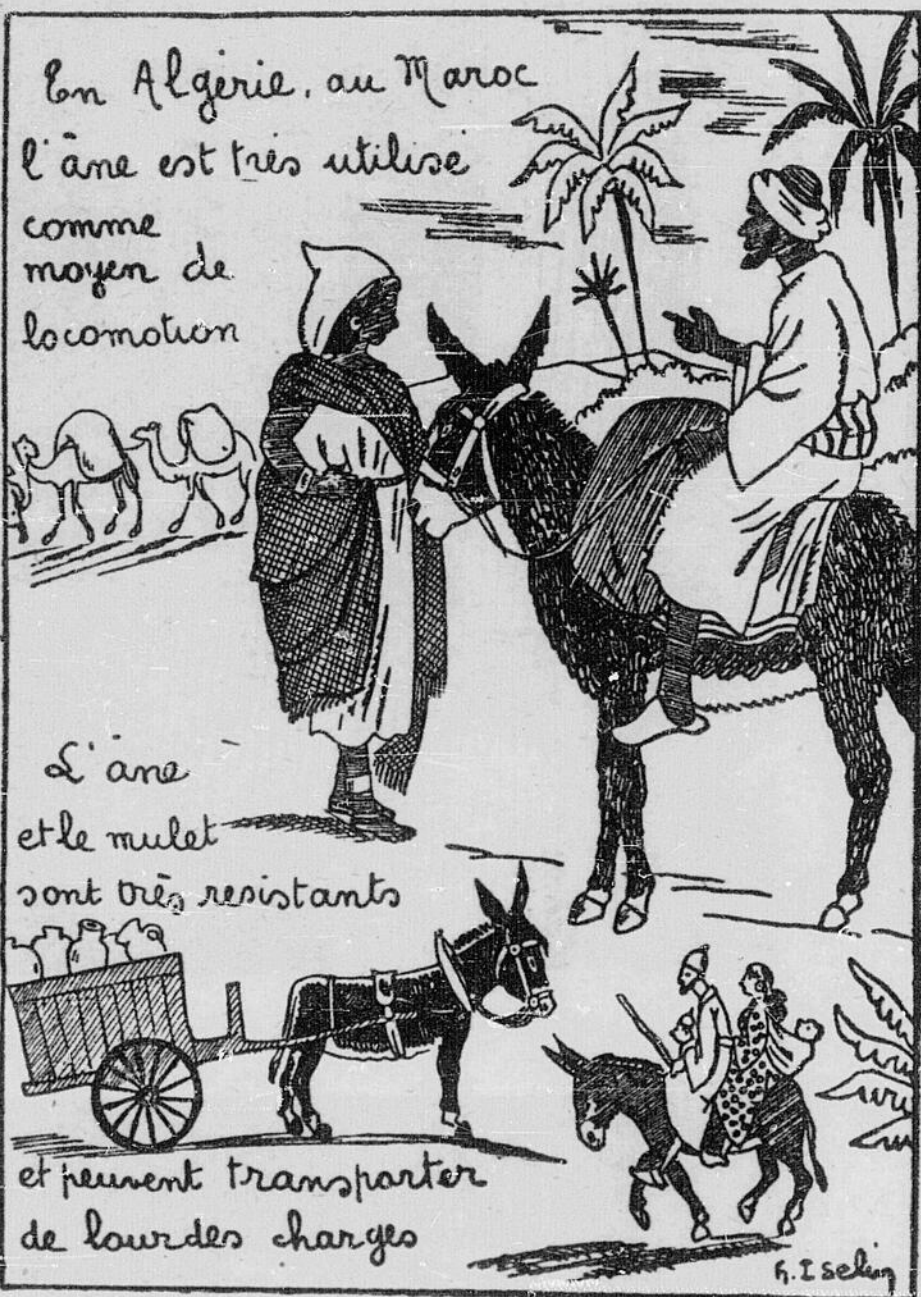 En Algérie, au Maroc
l'âne est très utilisé
comme
moyen de
locomotion
L'âne
et le mulet
sont très resistants
et peuvent transporter
de lourdes charges
h. Iselin